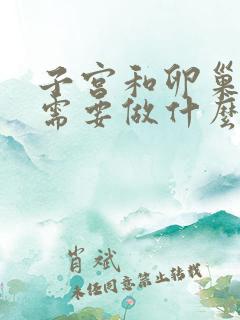 子宫和卵巢
需要做什麼
肖斌
未经同意禁止转载